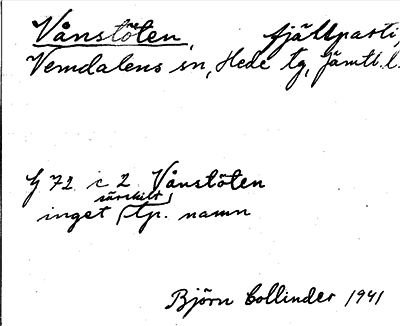 Vånstöten, fjällparti,
Vemdalens sn, Hede tg, Jämtl. l.
G 72 c 2 Vånstöten
särskilt
inget (tp. namn
Björn Collinder 1941